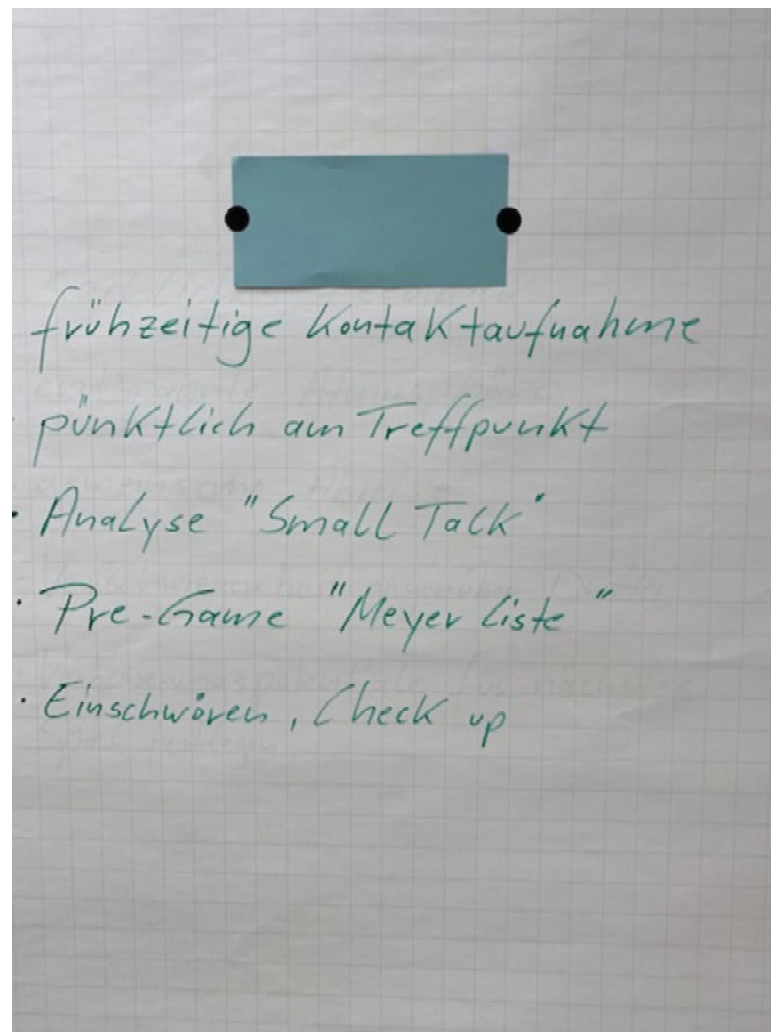 frühzeitige Kontaktaufnahme
· pünktlich am Treffpunkt
· Analyse "Small Talk"
· Pre-Game "Meyer Liste"
· Einschwören, Check up